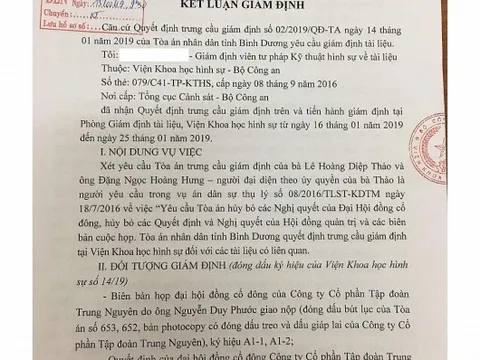 ĐẾN
Ngày:
Chuyển:
Lưu hồ sơ số:
KẾT LUẬN GIÁM ĐỊNH
Căn cứ Quyết định trưng cầu giám định số 02/2019/QĐ-TA ngày 14 tháng
01 năm 2019 của Tòa án nhân dân tỉnh Bình Dương yêu cầu giám định tài liệu.
Tôi: - Giám định viên tư pháp Kỹ thuật hình sự về tài liệu
Thuộc: Viện Khoa học hình sự - Bộ Công an
Số thẻ: 079/C41-TP-KTHS, cấp ngày 08 tháng 9 năm 2016
Nơi cấp: Tổng cục Cảnh sát - Bộ Công an
đã nhận Quyết định trưng cầu giám định trên và tiến hành giám định tại
Phòng Giám định tài liệu, Viện Khoa học hình sự từ ngày 16 tháng 01 năm 2019
đến ngày 25 tháng 01 năm 2019.
I. NỘI DUNG VỤ VIỆC
Xét yêu cầu Tòa án trưng cầu giám định của bà Lê Hoàng Diệp Thảo và
ông Đặng Ngọc Hoàng Hưng – người đại diện theo ủy quyền của bà Thảo là
người yêu cầu trong vụ án dân sự thụ lý số 08/2016/TLST-KDTM ngày
18/7/2016 về việc "Yêu cầu Tòa án hủy bỏ các Nghị quyết của Đại Hội đồng cổ
đông, hủy bỏ các Quyết định và Nghị quyết của Hội đồng quản trị và các biên
bản cuộc họp. Tòa án nhân dân tỉnh Bình Dương quyết định trưng cầu giám định
tại Viện Khoa học hình sự đối với các tài liệu có liên quan.
II. ĐỐI TƯỢNG GIÁM ĐỊNH (đóng dấu ký hiệu của Viện Khoa học hình
sự số 14/19)
- Biên bản họp đại hội đồng cổ đông của Công ty Cổ phần Tập đoàn
Trung Nguyên do ông Nguyễn Duy Phước giao nộp (đóng dấu bút lục của Tòa
án số 653, 652, bản photocopy có đóng dấu treo và dấu giáp lai của Công ty Cổ
phần Tập đoàn Trung Nguyên), ký hiệu A1-1, A1-2;
Quyết định của đại hội đồng cổ đông Công ty Cổ phần Tập đoàn Trung